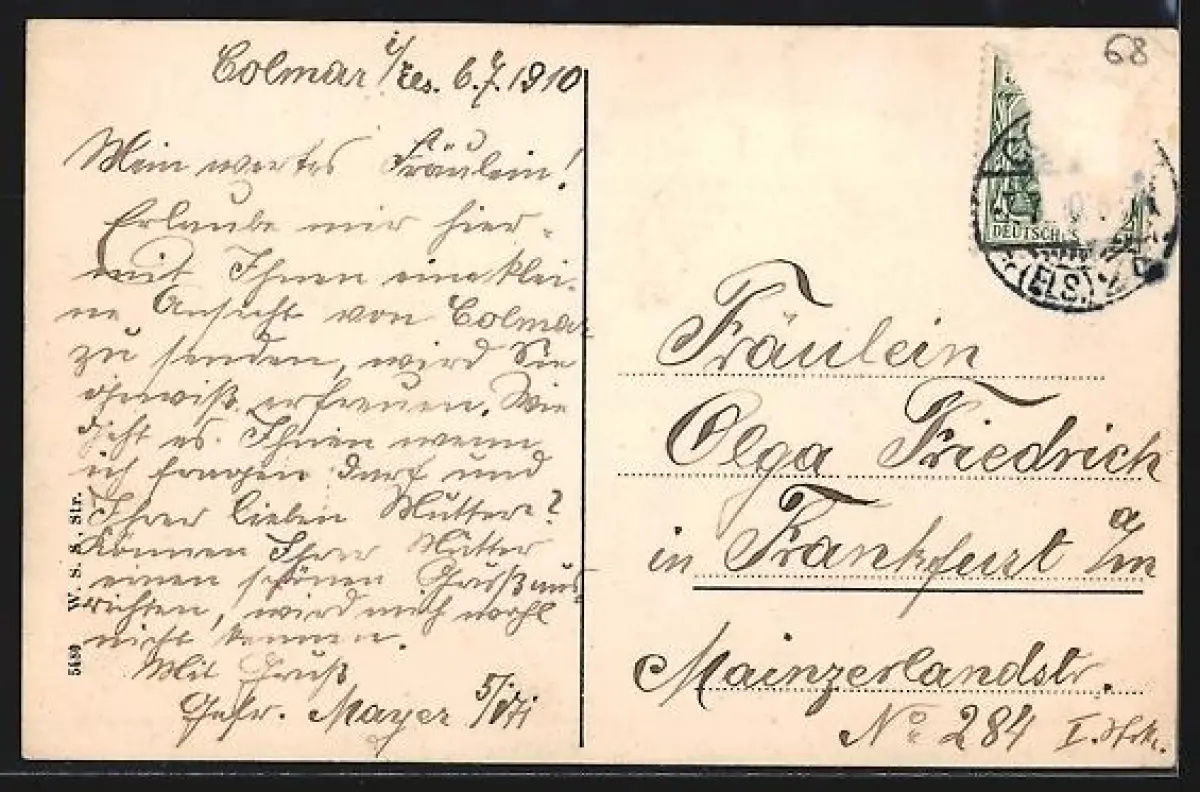 Colmar i/Els. 6.7.1910
Mein wertes Fräulein!
Erlaube mir hier-
mit Ihnen eine klei-
ne Ansicht von Colmar
zu senden, wird Sie
gewiß erfreuen. Wie
geht es Ihnen wenn
ich fragen darf und
Ihrer lieben Mutter?
Können Ihrer Mutter
einen schönen Gruß aus-
richten, wird mich wohl
nicht kennen.
Mit Gruß
Gefr. Mayer
5680 W. S. S. Str.
68
DEUTSCHES
(ELS.)
Fräulein
Olga Friedrich
in Frankfurt a/m
Mainzerlandstr.
No 284 I. Stck.